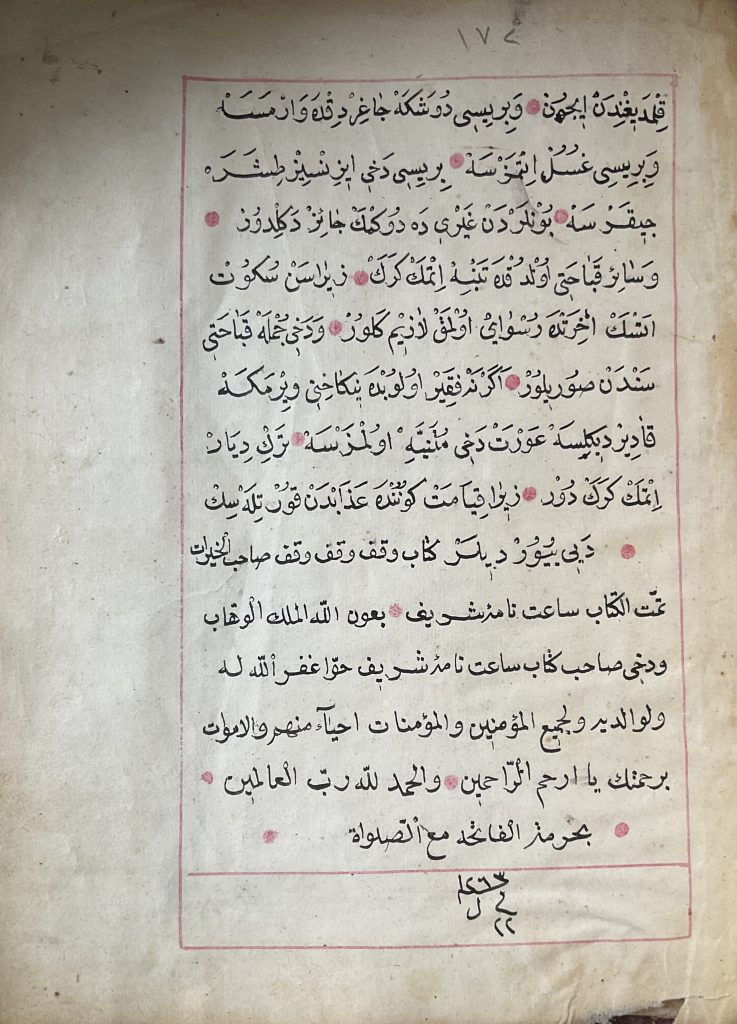 ١٧٢
قِلْمَدِيغِنْدَنْ ايچُونْ وَبِرِيسِى دُوشَكَهْ چَاغِرْدِقْدَهْ وَارْمَسَهْ
وَبِرِيسِى غُسُلْ اِتْمَزْسَهْ بِرِيسِى دَخِى اِيزِنْسِيزْ طِشَرَهْ
چِيقَرْسَهْ بُونْلَرْدَنْ غَيْرِى دَهْ دُوكْمَكْ جَائِزْ دَكِلْدُورْ
وَسَائِرْ قَبَاحَتِى اُولْدُقْدَهْ تَنْبِهْ اِتْمَكْ كَرَكْ زِيرَا سَنْ سُكُوتْ
اتسَكْ اٰخِرَتْدَهْ رُسْوَاىْ اُولْمَقْ لَازِيمْ كَلُورْ وَدَخِى جُمْلَهْ قَبَاحَتِى
سَنْدَنْ صُورِيلُورْ اَكَرْنَهْ فَقِيرْ اُولُوبْدَهْ نِكَاحِنِى وِيرْمَكَهْ
قَادِيرْ دِيكِلِسَهْ عَوْرَتْ دَخِى مُتَنَبِّهْ اُولْمَزْسَهْ تَرْكِ دِيَارْ
اِتْمَكْ كَرَكْ دُورْ زِيرَا قِيَامَتْ كُونُنْدَهْ عَذَابْدَنْ قُورْتِلَهْسِكْ
دَيِى بُيُورْدِيلَرْ كتاب وقف وقف وقف صاحب الخيرات
تمّت الكتاب ساعت نامهٔ شريف بعون الله الملك الوهاب
ودخى صاحب كتاب ساعت نامهٔ شريف حوّا غفر الله له
ولوالديه ولجميع المؤمنين والمؤمنات احياۤء منهم والاموات
برحمتك يا ارحم الرّاحمين والحمد للّه ربّ العالمين
بحرمة الفاتحه مع الصّلواة
١٢٦٣
فى ل
٢٢